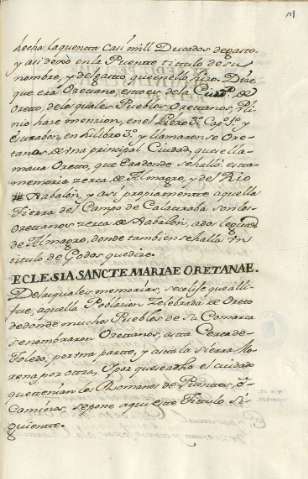 hecha la puente casi mill Ducados de gasto.
y assi dexò en la Puente titulo de su
nombre, y del gasto que en ello hizo. Dize
que era Oretano, esto es de la
Oreto, de los quales Pueblos Oretanos, Pli-
nio haze mencion, en el libro 3º Cap.
Estrabon, en su libro 3º y llamaronse Ore-
tanos de una principal Ciudad, que se lla-
mava Oreto, que era donde se halló esta
memoria zerca de Almagro, y del Rio
Xabalón, y assi propiamente aquella
Tierra del Campo de Calatraba son los
Oretanos zerca de Xabalón, a dos leguas
de Almagro, donde tambien se halla un
titulo de Godos que dize.
ECLESIA SANCTE MARIAE ORETANAE.
De las quales memorias, se colije que alli
fue, aquella Poblacion zelebrada de Oreto
de donde muchos Pueblos de su Comarca
se nombraron Oretanos, asta Cerca de
Toledo, por una parte, y asta la Sierra Mo-
rena por otra, y por que se vea el cuidado
que tenian los Romanos de Puentes, y
Caminos, se pone aqui este Titulo si-
guiente.